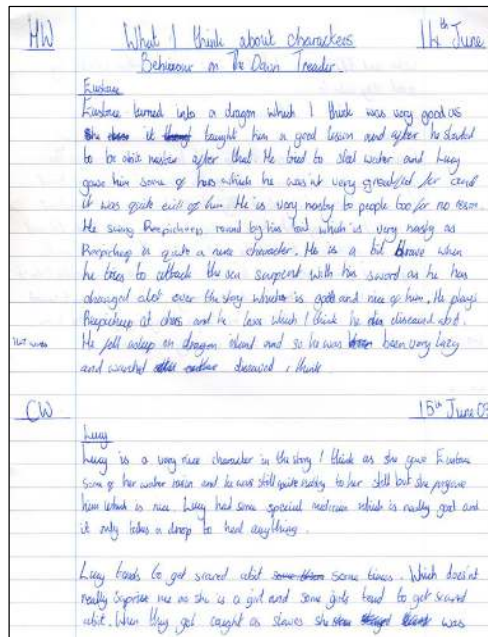 HW What I think about charackers 14th June
Behaviour on The Dawn Treader.
Eustace
Eustace turned into a dragon which I think was very good as
it taught him a good lesson and after he started
to be abit nicer after that. He tried to steal water and Lucy
gave him some of hers which he was'nt very greatful for and
it was quite evil of him. He is very nasty to people too for no reson.
He swing Reepicheep round by his tail which is very nasty as
Reepicheep is quite a nice character. He is a bit brave when
he tries to attack the sea serpent with his sword as he has
changed alot over the story which is good and nice of him. He plays
Reepicheep at chess and he loses which I think he diseaved abit.
He fell asleep on dragon island and so he was been very lazy
and diseaved i think
CW 15th June 03
Lucy
Lucy is a very nice character in the story I think as she gave Eustace
some of her water rasion and he was still quite nasty to her still but she forgave
him which is nice. Lucy had some special medicine which is really good and
it only takes a drop to heal anything.
Lucy tends to get scared abit some times. Which does'nt
really surprise me as she is a girl and some girls tend to get scared
abit. When they got caught as slaves she was